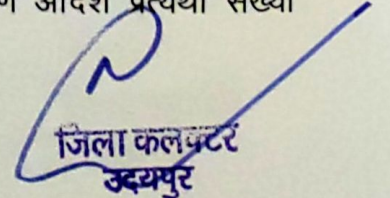 आदेश प्रत्यर्थी संख्या
जिला कलक्टर
उदयपुर